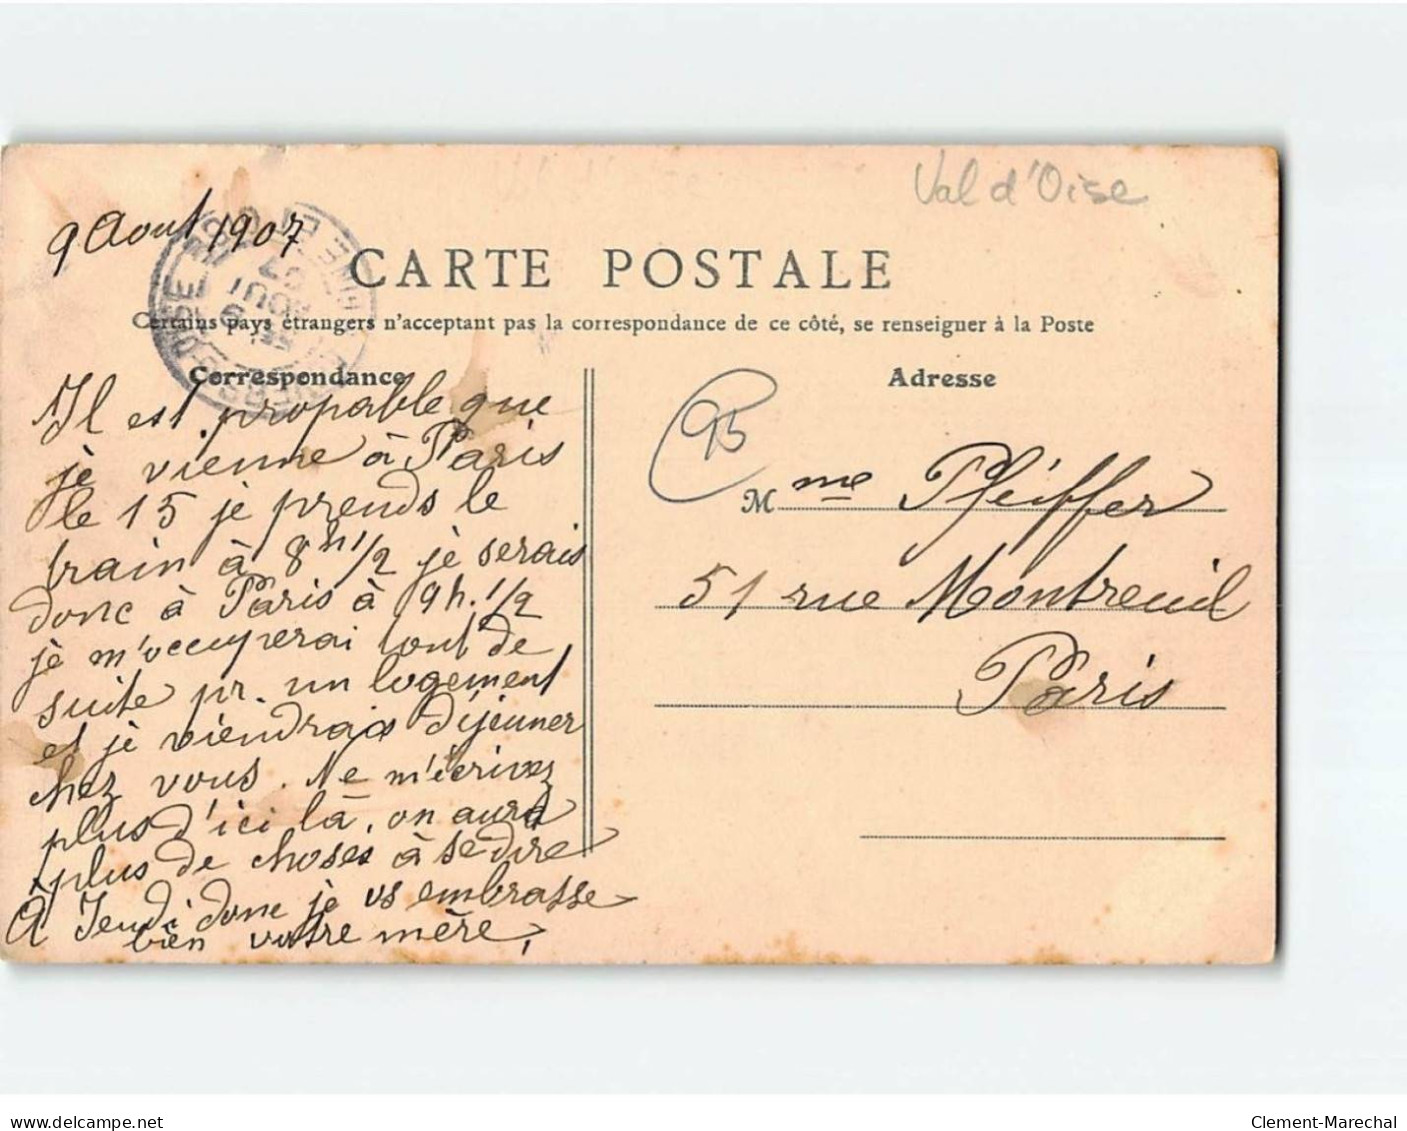 Val d'Oise
9 Aout 1907
CARTE POSTALE
Certains pays étrangers n'acceptant pas la correspondance de ce côté, se renseigner à la Poste
Correspondance
Il est propable que
je vienne à Paris
le 15 je prends le
train à 8h 1/2 je serais
donc à Paris à 9h. 1/2
je m'occuperai tout de
suite pr. un logement
et je viendrais déjeuner
chez vous. Ne m'écrivez
plus d'ici là, on aura
plus de choses à se dire
À Jeudi donc je vs embrasse
bien votre mère,
Adresse
95
Mme Pfeiffer
51 rue Montreuil
Paris
delcampe.net
Clement-Marechal